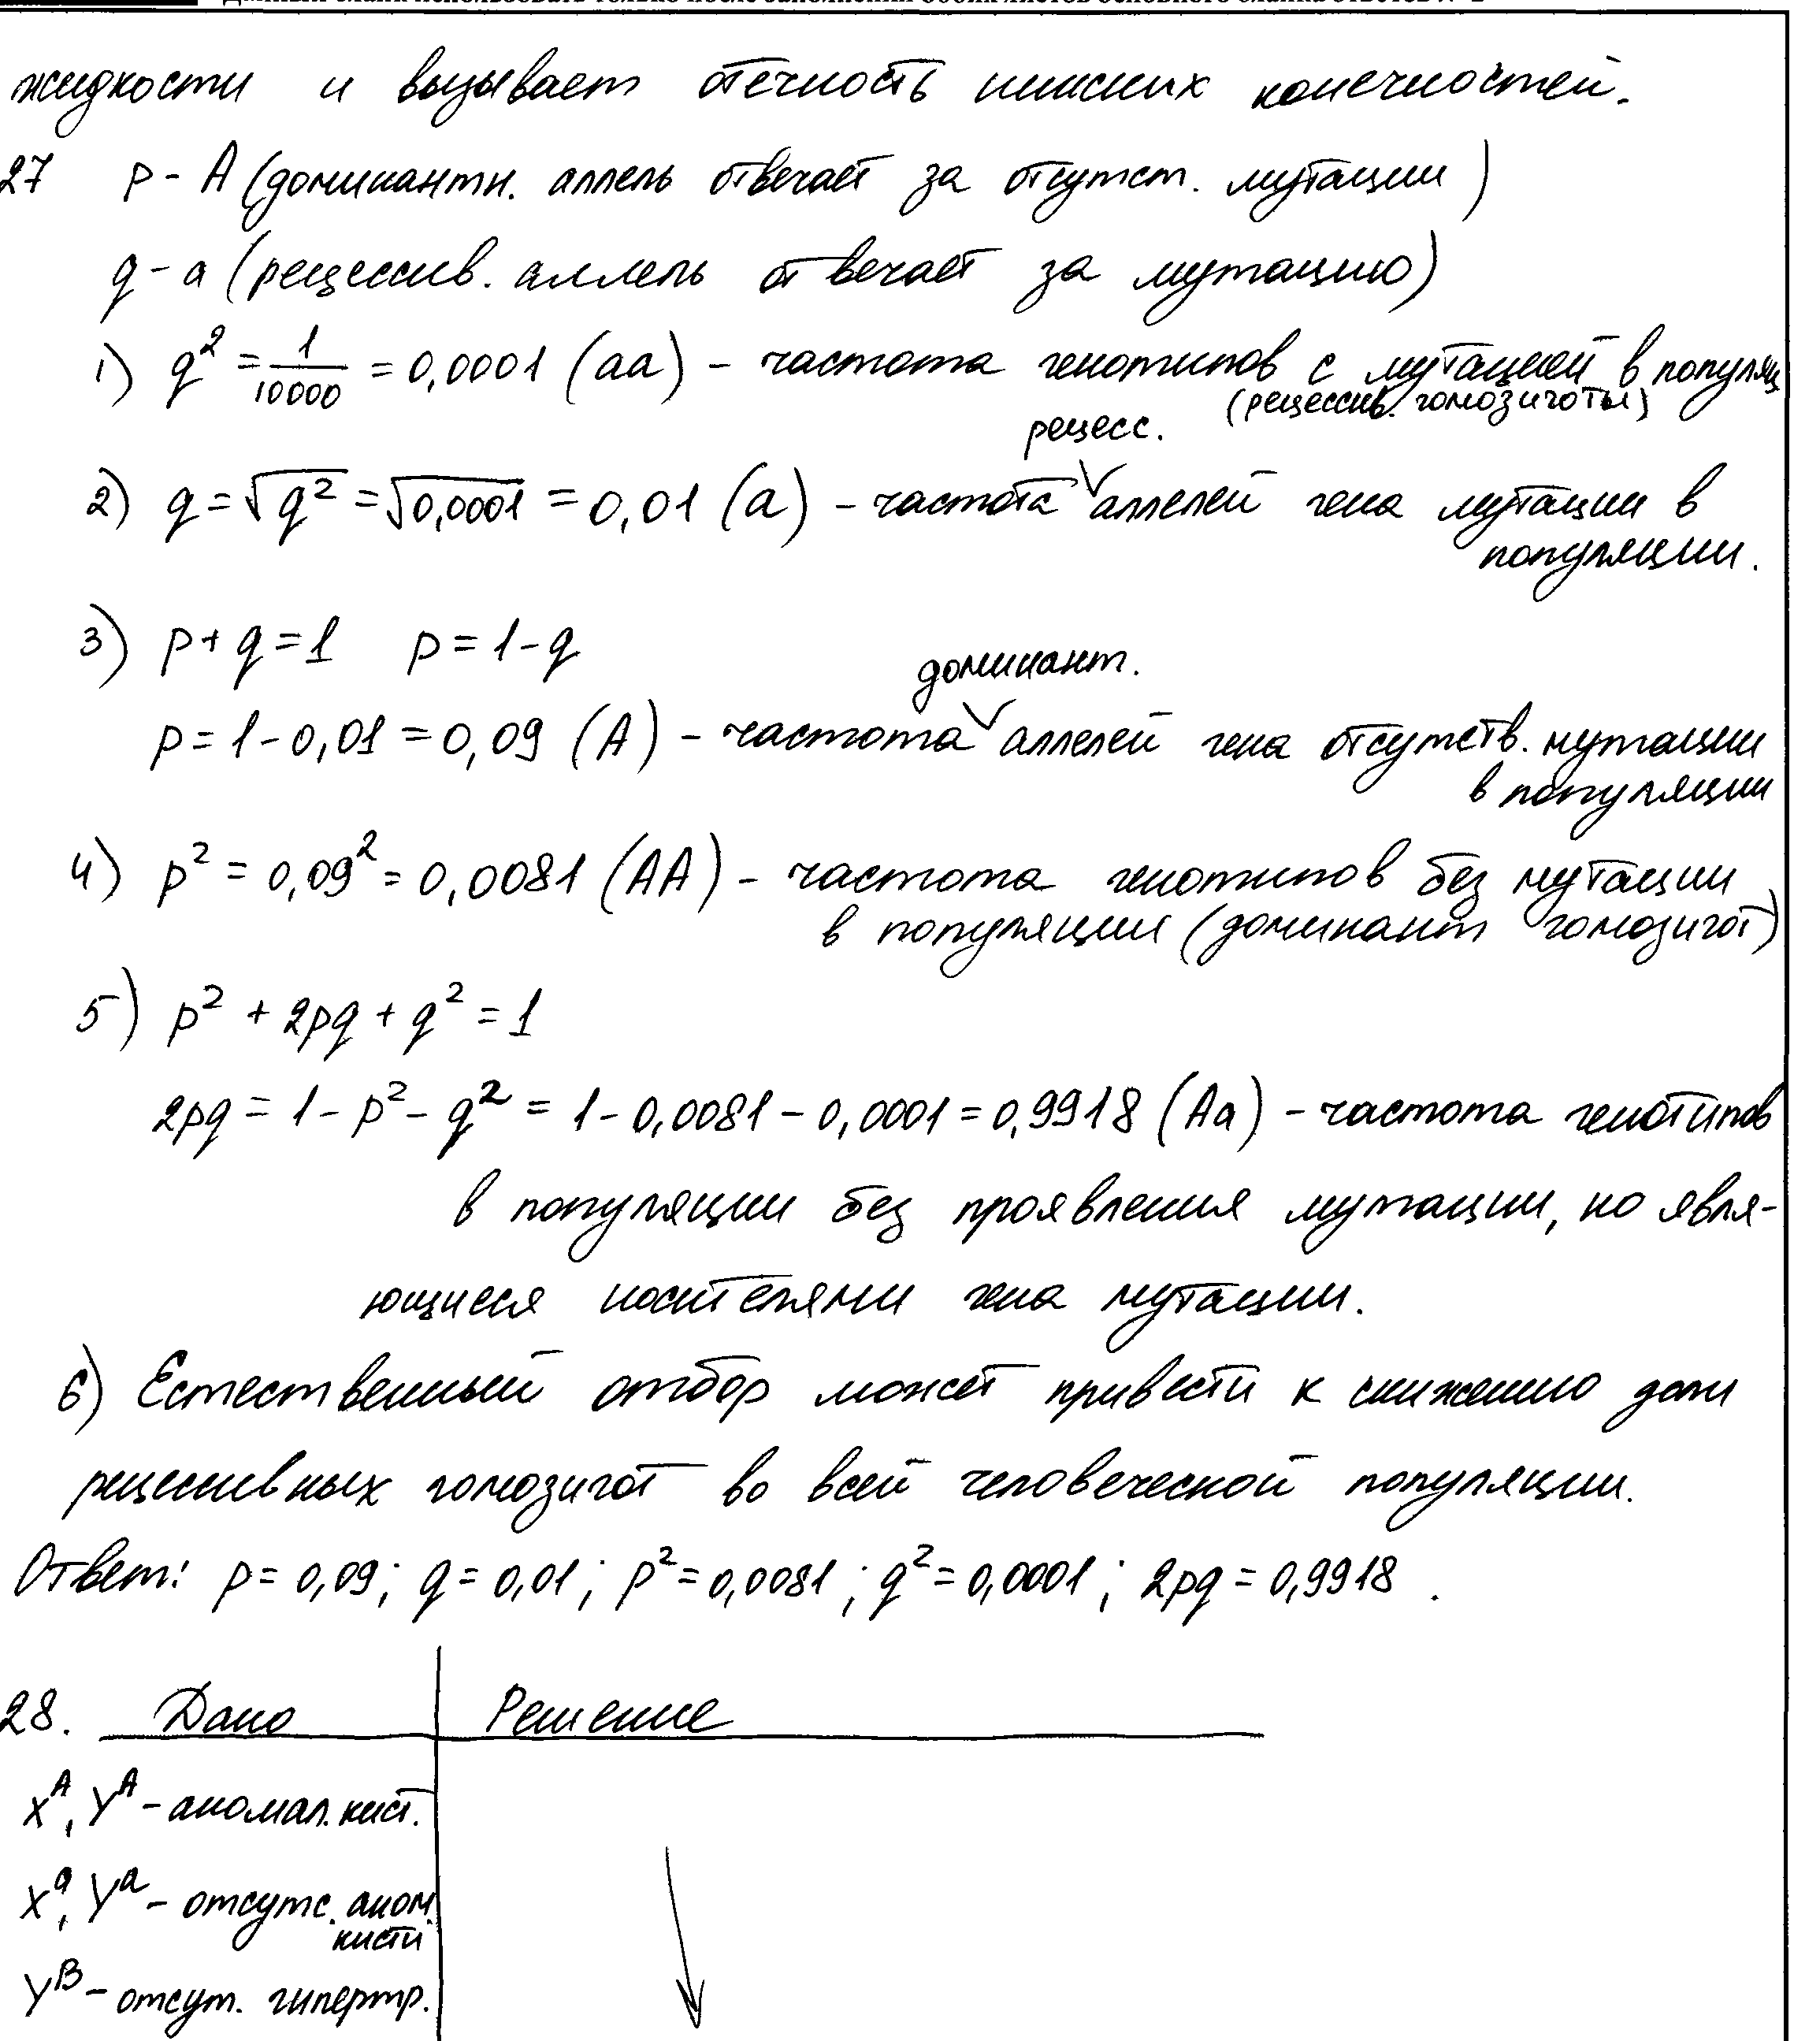 жидкости и вызывает отечность нижних конечностей.
27 p - A (доминантн. аллель отвечает за отсутст. мутации)
q - a (рецессив. аллель отвечает за мутацию)
1) q² = 1/10000 = 0,0001 (aa) - частота генотипов с мутацией в популяц
(рецессив. гомозиготы)
рецесс.
2) q = √q² = √0,0001 = 0,01 (a) - частота ∨ аллелей гена мутации в
популяции.
3) p + q = 1 p = 1 - q
доминант.
p = 1 - 0,01 = 0,09 (A) - частота ∨ аллелей гена отсутств. мутации
в популяции
4) p² = 0,09² = 0,0081 (AA) - частота генотипов без мутации
в популяции (доминант гомозигот)
5) p² + 2pq + q² = 1
2pq = 1 - p² - q² = 1 - 0,0081 - 0,0001 = 0,9918 (Aa) - частота генотипов
в популяции без проявления мутации, но явля-
ющиеся носителями гена мутации.
6) Естественный отбор может привести к снижению доли
рецессивных гомозигот во всей человеческой популяции.
Ответ: p = 0,09; q = 0,01; p² = 0,0081; q² = 0,0001; 2pq = 0,9918.
28. Дано Решение
Xᴬ, Yᴬ - аномал. кист.
Xᵃ, Yᵃ - отсутс. аном.
кисти
Yᴮ - отсут. гипертр.